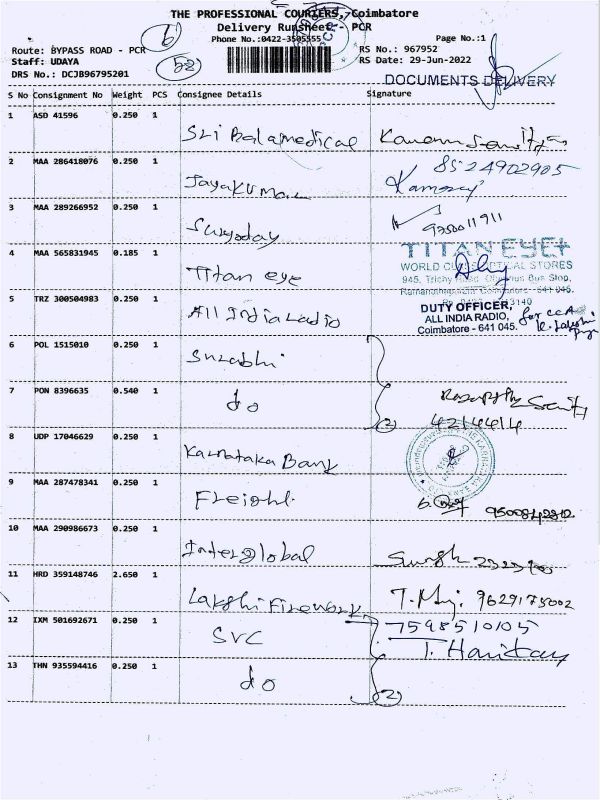 THE PROFESSIONAL COURIERS, Coimbatore
Delivery Runsheet - PCR
Phone No.:0422-3505555
Page No.:1
Route: BYPASS ROAD - PCR
RS No.: 967952
Staff: UDAYA
RS Date: 29-Jun-2022
DRS No.: DCJB96795201
6
52
DOCUMENTS DELIVERY
S No Consignment No Weight PCS Consignee Details Signature
1 ASD 41596 0.250 1 Sri Balamedical
2 MAA 286418076 0.250 1 Jayakumar 8524902905
3 MAA 289266952 0.250 1 Suryoday
4 MAA 565831945 0.185 1 Titan eye
TITAN EYE+
WORLD CLASS OPTICAL STORES
945, Trichy Road, Bus Stop,
Ramanathapuram, Coimbatore - 641 045.
5 TRZ 300504983 0.250 1 All India Radio
DUTY OFFICER,
ALL INDIA RADIO,
Coimbatore - 641 045.
6 POL 1515010 0.250 1 Surabhi
7 PON 8396635 0.540 1 do
2
4214414
8 UDP 17046629 0.250 1 Karnataka Bank
9 MAA 287478341 0.250 1 Freight.
10 MAA 290986673 0.250 1 Interglobal
11 HRD 359148746 2.650 1 Lakshi Firework 9629175002
12 IXM 501692671 0.250 1 SVC 7598510105
13 THN 935594416 0.250 1 do
2